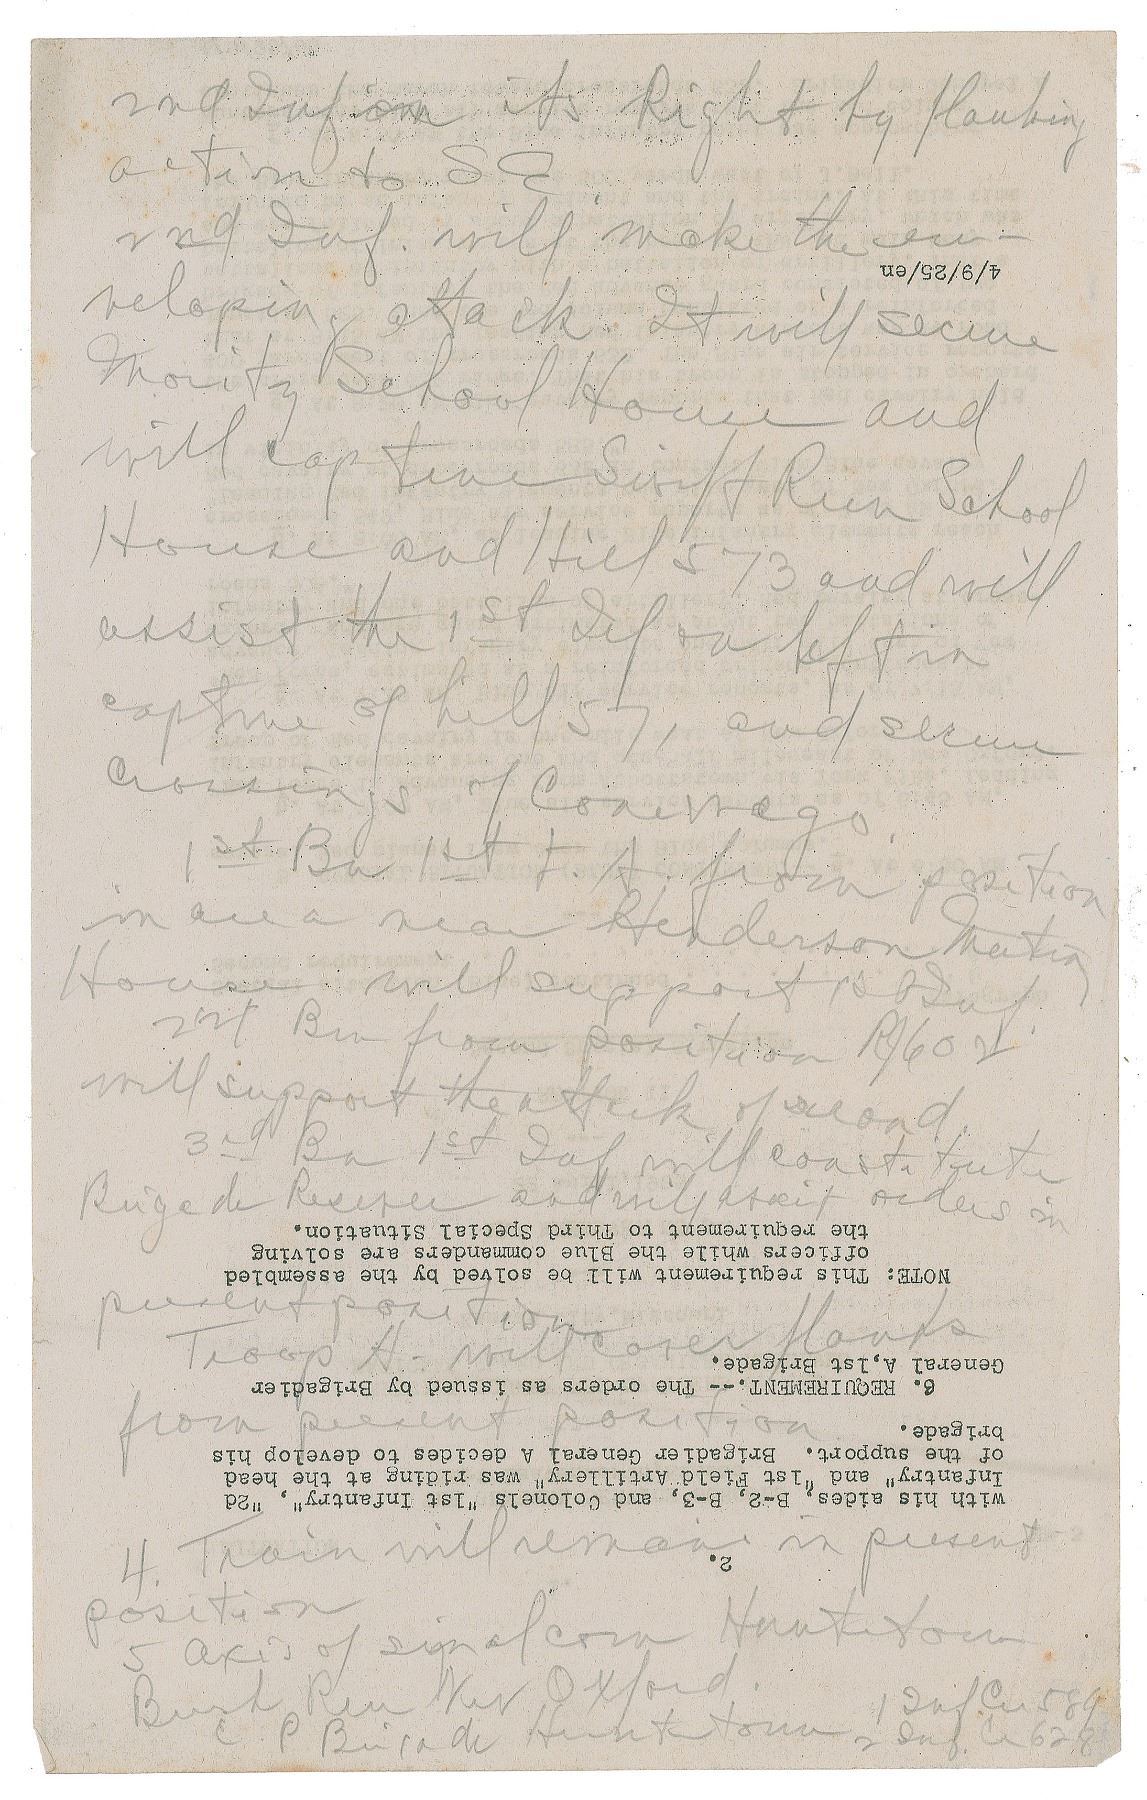 2nd Inf on its Right by flanking
action to SE
2nd Inf. will make the en-
4/9/25/en
veloping attack. It will secure
Moritz School House and
will capture Swift Run School
House and Hill 573 and will
assist the 1st Inf on left in
capture of hill 571, and secure
Crossings of Conewago.
1st Bn 1st F.A. from position
in area near Henderson Meeting
House will support 1st Inf.
2nd Bn from position 602
will support the attack of second.
3rd Bn 1st Inf will constitute
Brigade Reserve and will await orders in
NOTE: This requirement will be solved by the assembled
officers while the Blue commanders are solving
the requirement to Third Special Situation.
present position
Troop A. will cover flanks
6. REQUIREMENT.-- The orders as issued by Brigadier
General A, 1st Brigade.
from present position
with his aides, B-2, B-3, and Colonels "1st Infantry", "2d
Infantry" and "1st Field Artillery" was riding at the head
of the support. Brigadier General A decides to develop his
brigade.
4. Train will remain in present
2.
position
5 Axis of signal com Hunterstown
Brush Run New Oxford.
C P Brigade Hunterstown
1 Inf Cr 589
2 Inf Cr 628